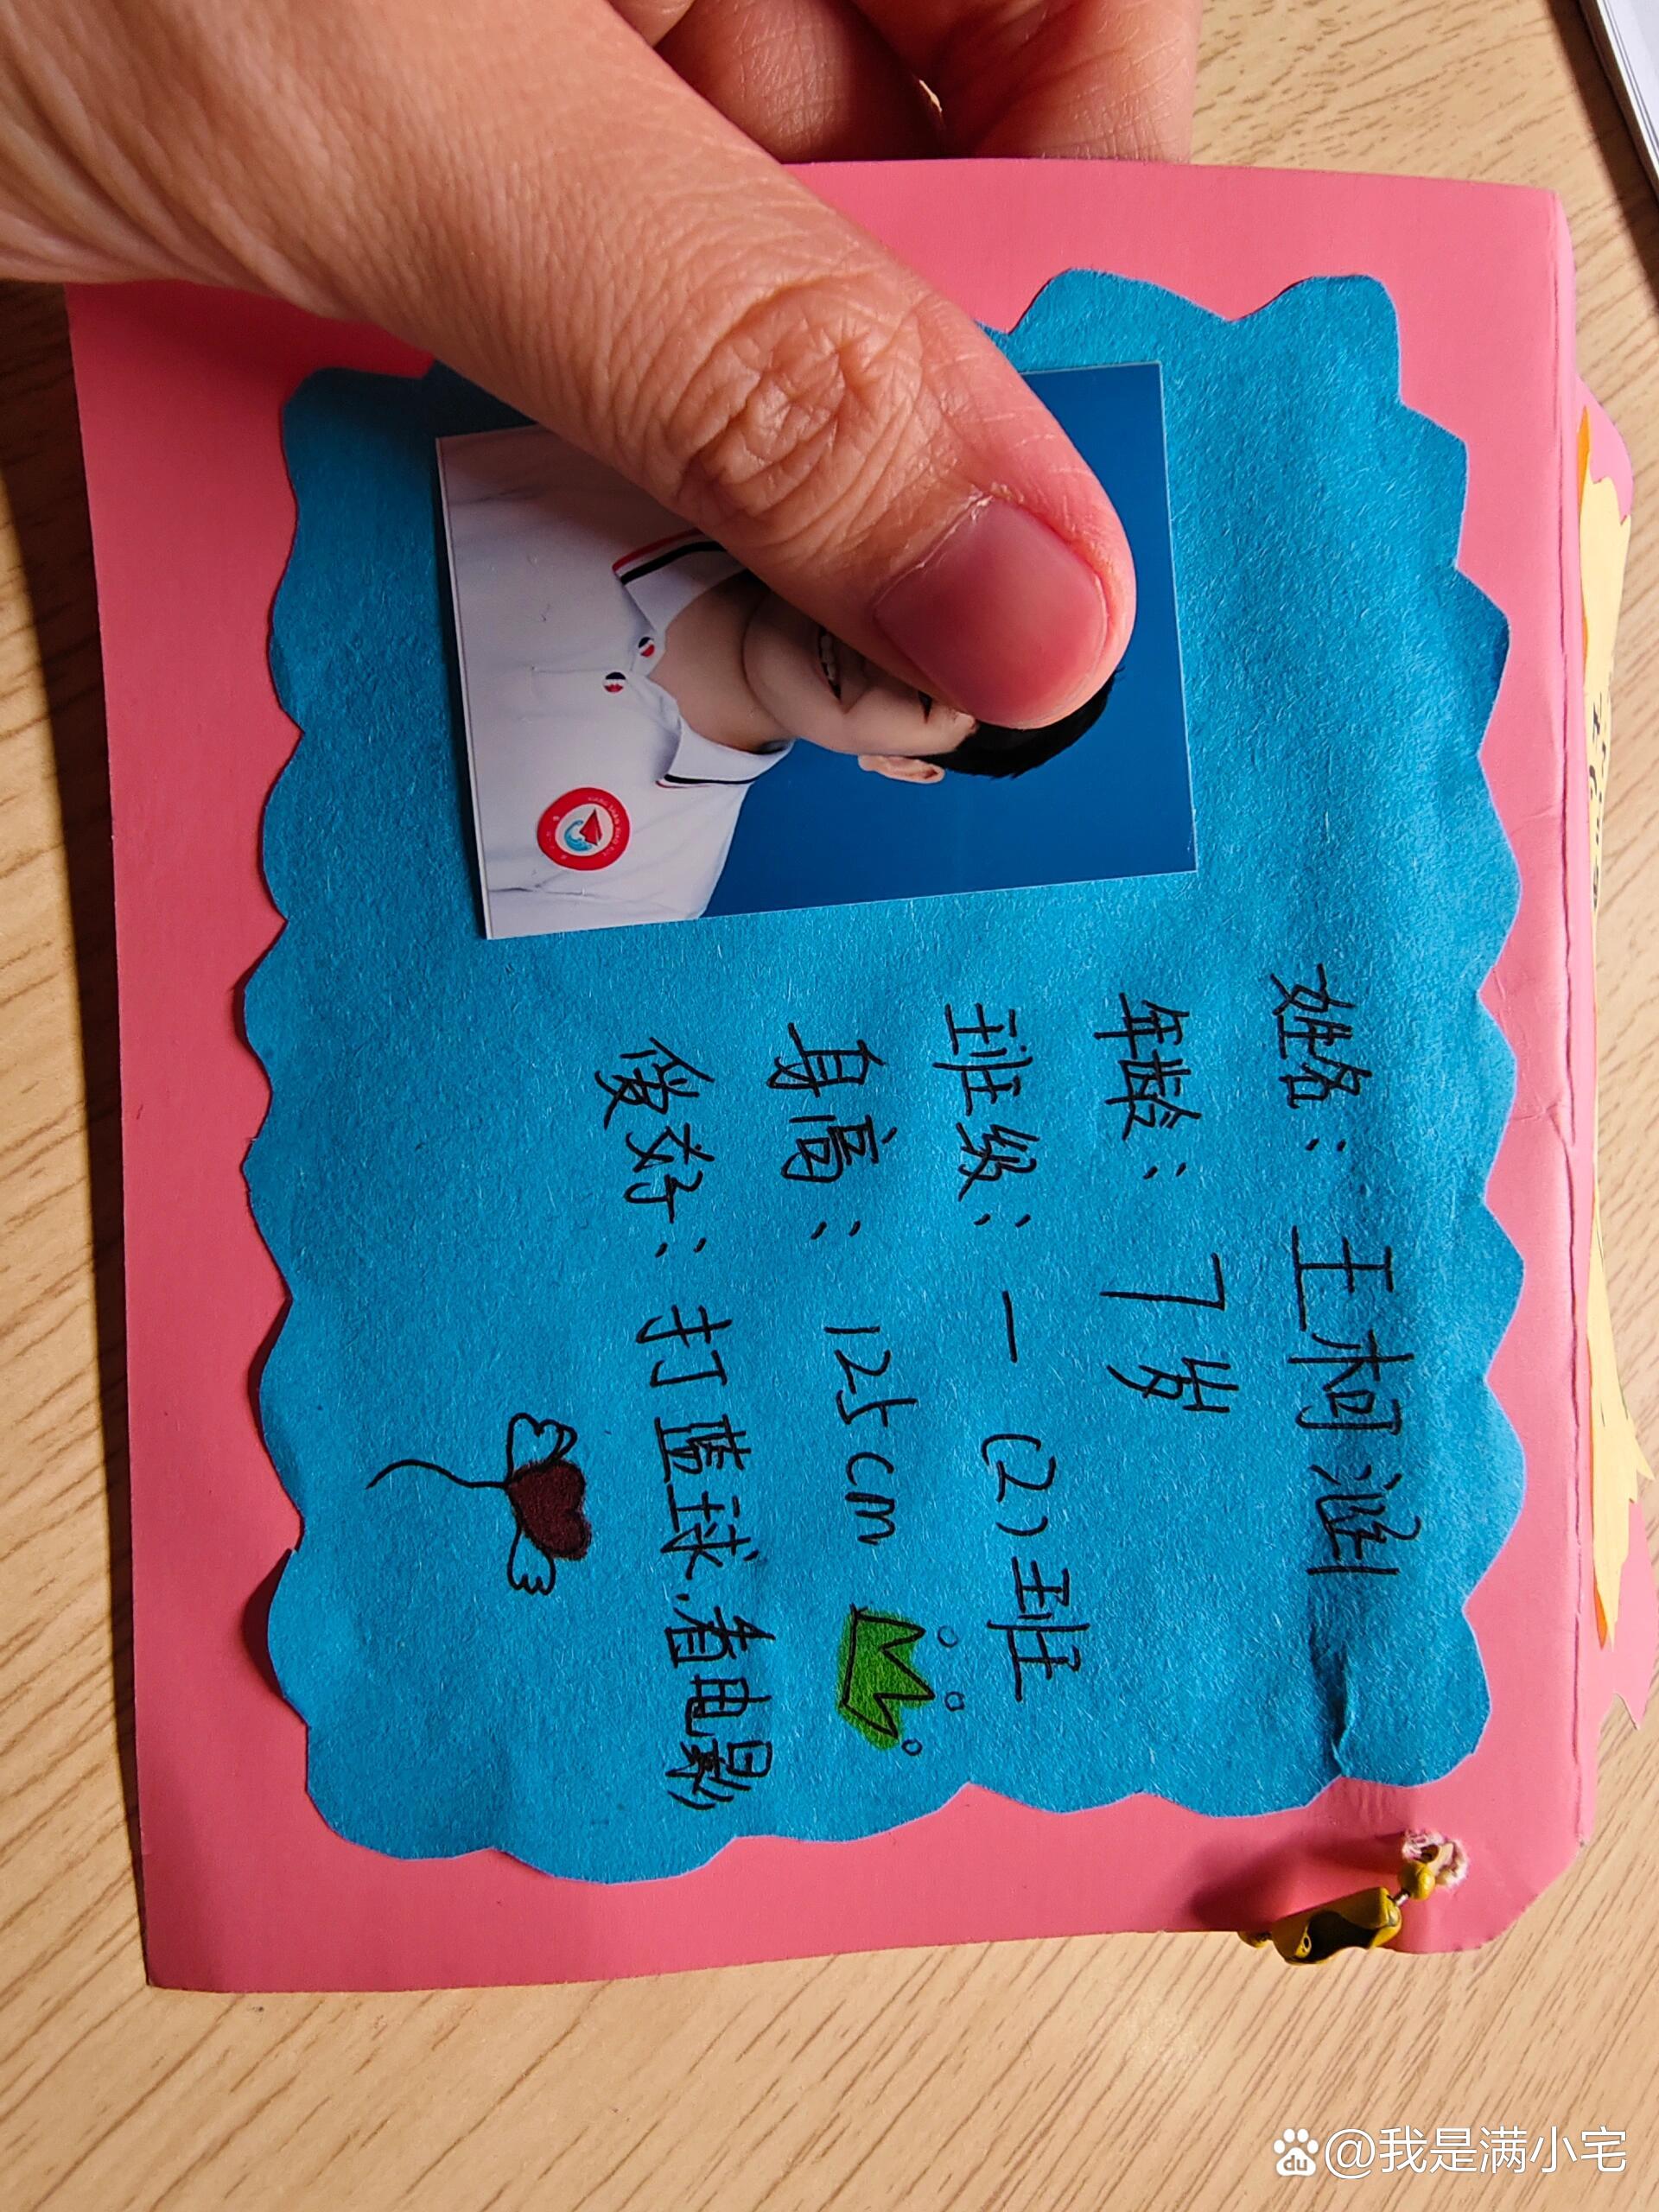 姓名：王柯涵
年龄：7岁
班级：一（2）班
身高：125cm
爱好：打蓝球、看电影
du @我是满小宅